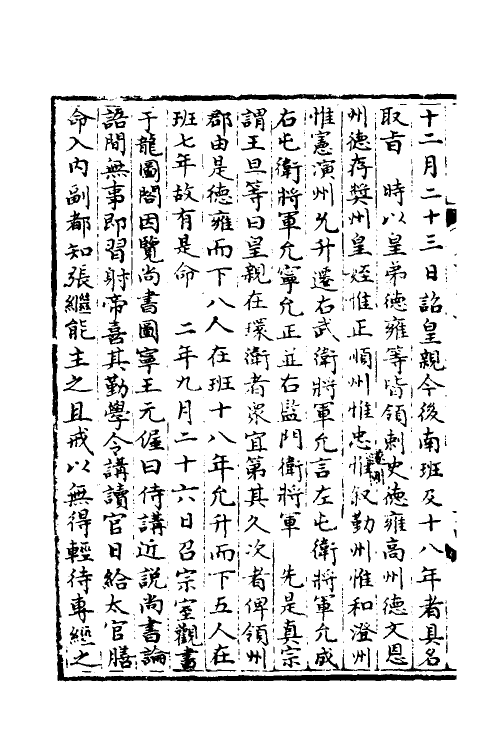 十二月二十三日詔皇親今後南班及十八年者具名
取旨　時以皇弟德雍等皆領刺史德雍高州德文恩
州德存獎州皇姪惟正順州惟忠惟叙勤州惟和澄州
惟憲演州允升遷右武衛將軍允言左屯衛將軍允成
右屯衛將軍允寧允正並右監門衛將軍　先是真宗
謂王旦等曰皇親在環衛者衆宜第其久次者俾領州
郡由是德雍而下八人在班十八年允升而下五人在
班七年故有是命　二年九月二十六日召宗室觀書
于龍圖閣因覽尚書圖寧王元偓曰侍講近説尚書論
語間無事即習射帝喜其勤學令講讀官日給太官膳
命入内副都知張繼能主之且戒以無得輕待專經之